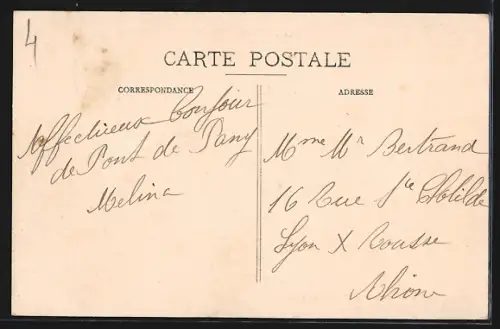 4
CARTE POSTALE
CORRESPONDANCE
Affectueux bonjour
de Pont de Pany
Melina
ADRESSE
Mme Mr Bertrand
16 Rue Ste Clotilde
Lyon X Rousse
Rhône